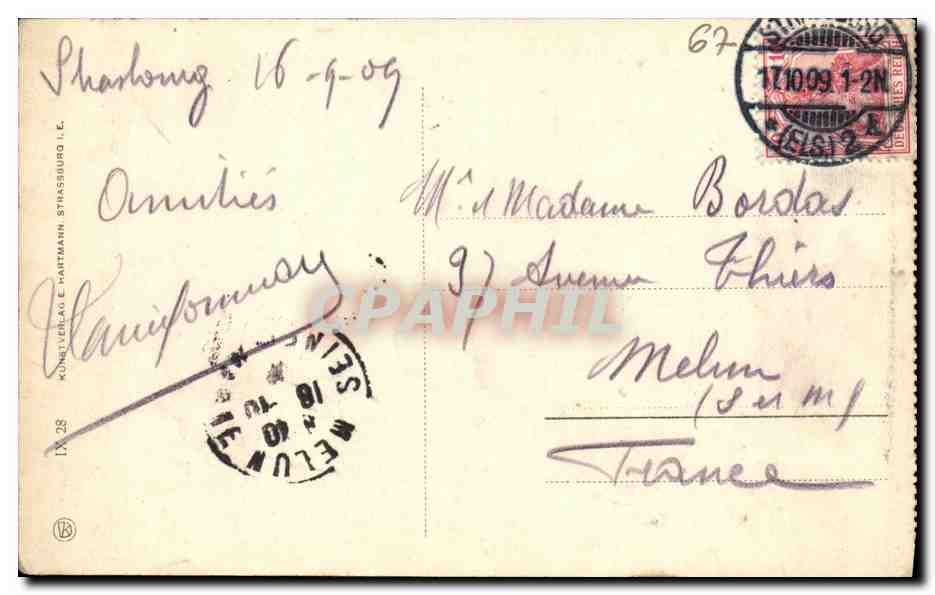 Strasbourg 16-9-09
Amitiés
KUNSTVERLAG E. HARTMANN, STRASSBURG I. E.
IX 28
67
STRASSBURG
17.10.09 1-2N
* (ELS.) 2 k
DEUTSCHES REICH
Mr & Madame Bordas
97 Avenue Thiers
Melun
(S et M)
France
MELUN
SEINE
CPAPHIL